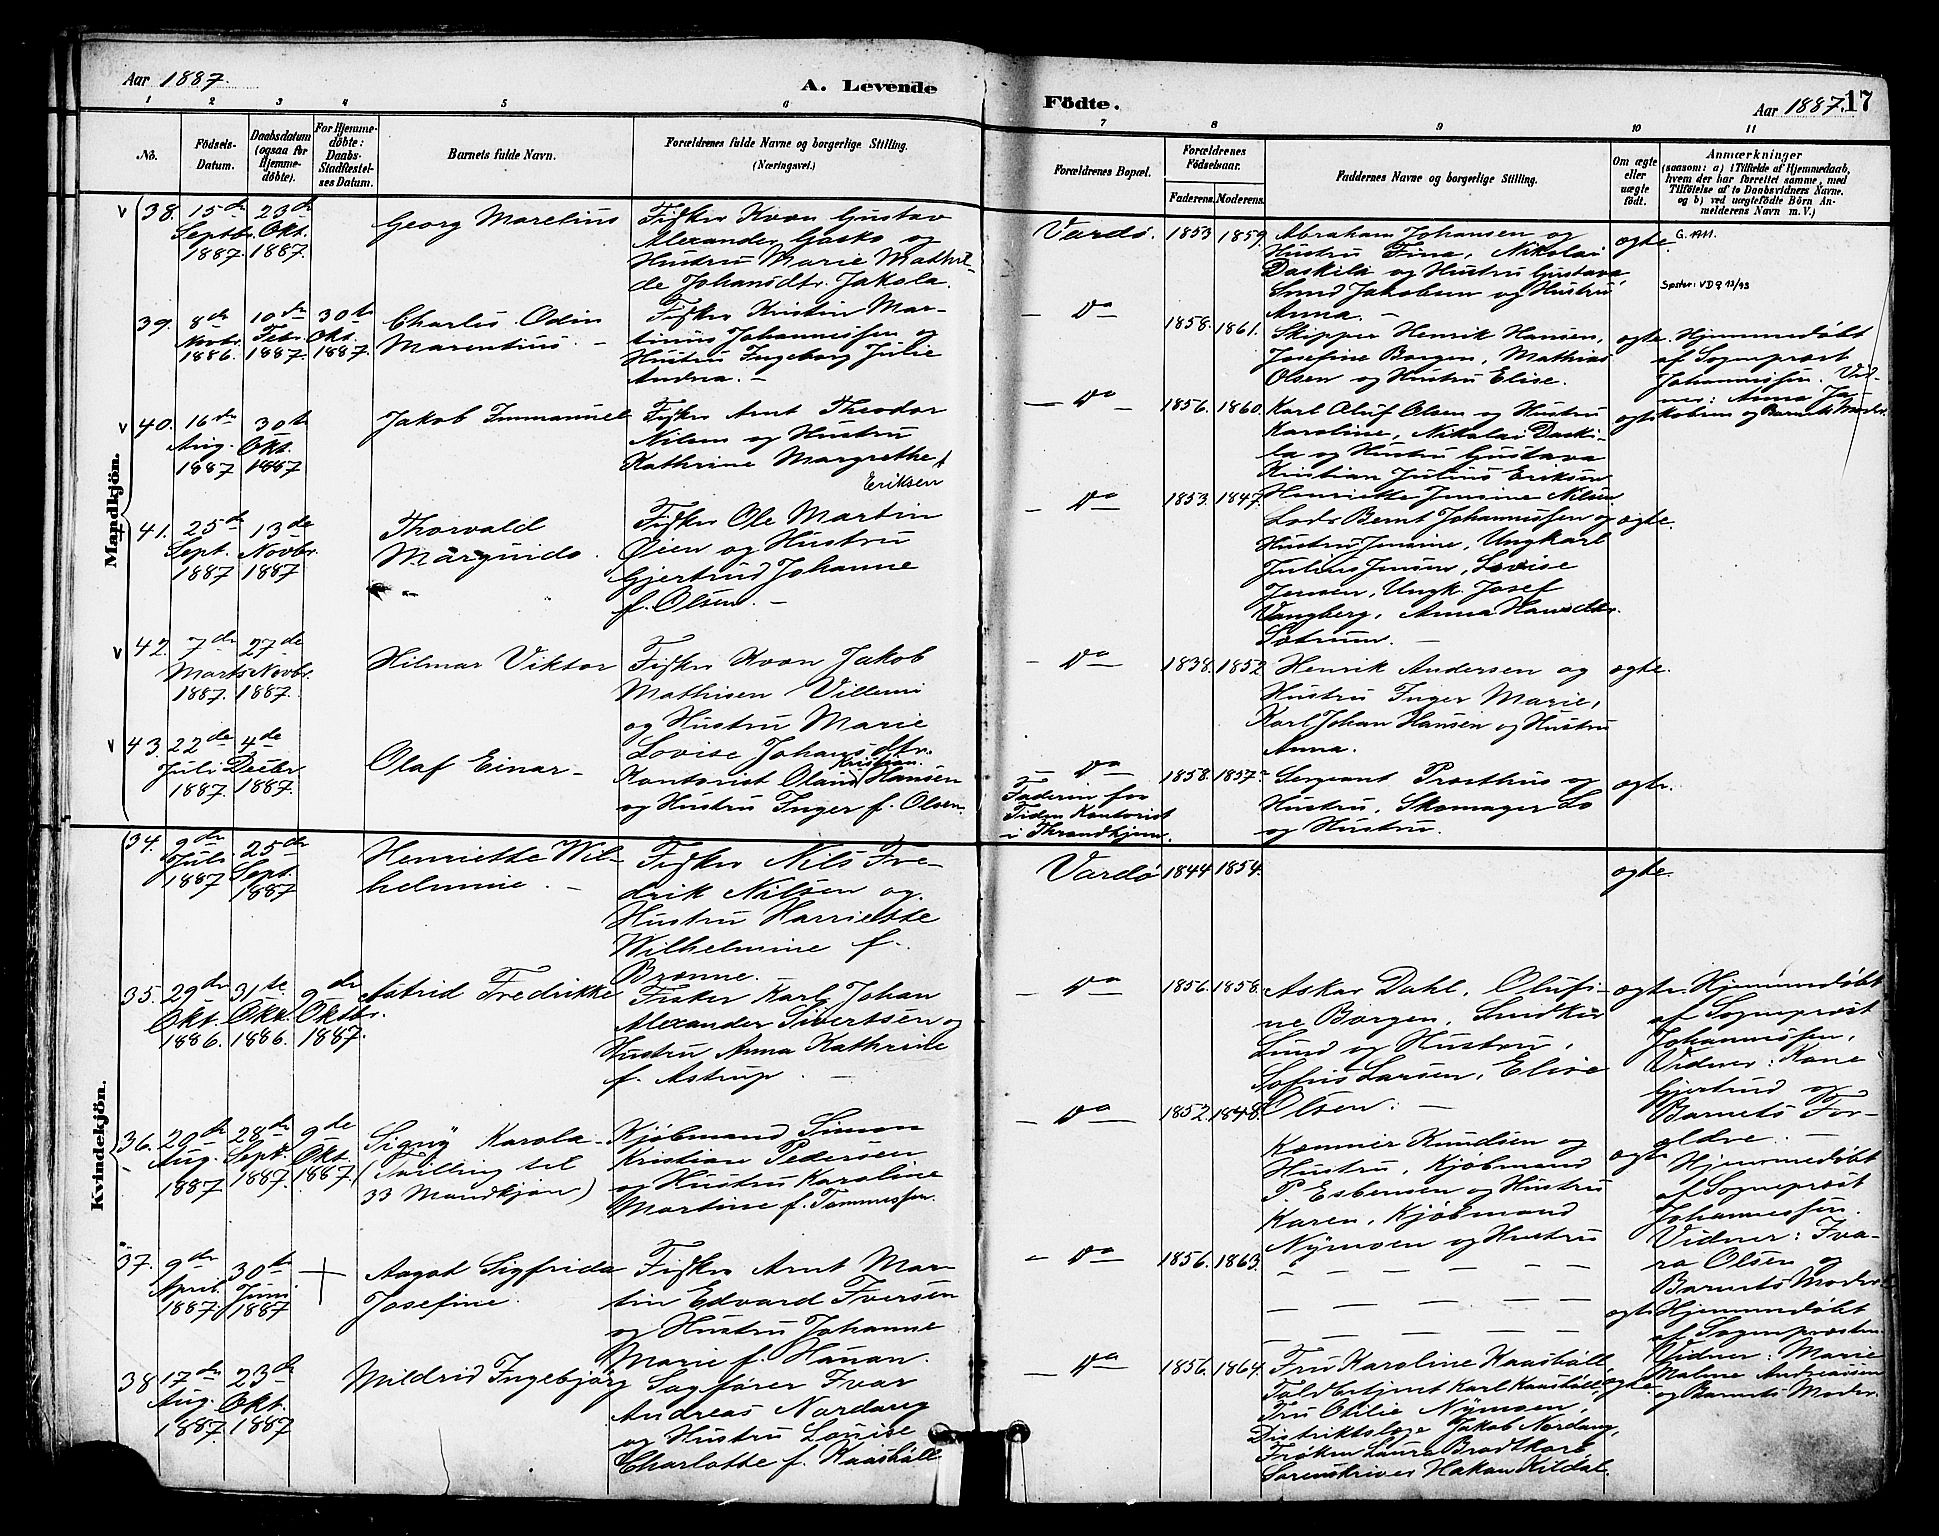 Aar 1887.
A. Levende
Födte.
Aar 1887. 17
1 2 3 4 5 6 7 8 9 10 11
No.
Födsels-Datum.
Daabsdatum (ogsaa for Hjemme-döbte).
For Hjemme-döbte: Daabs-Stadfæstel-ses Datum.
Barnets fulde Navn.
Forældrenes fulde Navne og borgerlige Stilling.
(Næringsvei.)
Forældrenes Bopæl.
Forældrenes Födselsaar.
Faderens. Moderens.
Faddernes Navne og borgerlige Stilling.
Om ægte eller uægte födt.
Anmærkninger
(saasom: a) i Tilfælde af Hjemmedaab, hvem der har forrettet samme, med Tilföielse af to Daabsvidners Navne, og b) ved uægtefödte Börn Anmelderens Navn m. V.)
Mandkjön.
v 38. 15de Septbr. 1887. 23de Okt. 1887.
Georg Marelius
Fisker Kven Gustav
Alexander Gasko og
Hustru Marie Mathil-
de Johansdtr. Jakola.
Vardø. 1853 1859
Abraham Johansen og
Hustru Fina, Nikolai
Daskila og Hustru Gustava
Smed Jakobsen og Hustru
Anna. –
ægte. G. 1911.
Søster: VD 9 13/93
39. 8de Novbr. 1886. 10de Febr. 1887. 30te Okt. 1887.
Charles Odin
Marentius. –
Fisker Kristin Mar-
tinus Johannessen og
Hustru Ingeborg Julie
Andrea. –
– Do 1858. 1861.
Skipper Henrik Hansen,
Josefine Borgen, Mathias
Olsen og Hustru Elise.
ægte. Hjemmedøbt
af Sogneprest
Johannessen. Vid-
ner: Anna Ja-
kobsen og Barnets Moder.
v 40. 16de Aug. 1887 30te Okt. 1887
Jakob Immanuel
Fisker Arnt Theodor
Nilsen og Hustru
Kathrine Margrethe
Eriksen
– Do – 1856. 1860.
Karl Oluf Olsen og Hustru
Karoline, Nikolai Daski-
la og Hustru Gustava
Kristian Julius Eriksen
Henriette Jensine Nilsen
ægte
41. 25de Sept. 1887 13de Novbr. 1887
Thorvald
Marquido.
Fisker Ole Martin
Øien og Hustru
Gjertrud Johanne
f. Olsen. –
– Do 1853. 1847.
Lods Bernt Johannessen og
Hustru Jensine, Ungkarl
Julius Jensen, Lovise
Jensen, Ungk. Josef
Vangberg, Anna Hansdtr.
Sotrum. –
ægte.
v 42. 7de Marts 1887. 27de Novbr. 1887.
Hilmar Viktor
Fisker Kven Jakob
Mathisen Villemi
og Hustru Marie
Lovise Johansdtr.
– Do 1838. 1852.
Henrik Andersen og
Hustru Inger Marie,
Karl Johan Hansen og Hustru
Anna.
ægte.
v 43 22de Juli 1887. 4de Decbr. 1887.
Olaf Einar –
Kristian
Kontorist Olaus Hansen
og Hustru Inger f. Olsen.
– Do
Faderen for
Tiden Kontorist
i Throndhjem.
1858. 1857.
Sergeant Prosthus og
Hustru, Skomager Lo
og Hustru.
ægte.
Kvindekjön.
34. 9de Juli 1887 25de Sept. 1887
Henriette Wil-
helmine. –
Fisker Nils Fre-
drik Nilsen og
Hustru Harriette
Wilhelmine f.
Brønne.
Vardø 1844 1854.
ægte.
35. 29de Okt. 1886. 31te Okt. 1886. 9de Oktbr. 1887.
Astrid Fredrikke
Fisker Karl Johan
Alexander Sivertsen og
Hustru Anna Kathrine
f. Astrup. –
– Do 1856. 1858.
Askar Dahl, Olufi-
ne Borgen, Smedker
Lund og Hustru,
Sofus Larsen, Elise
Olsen. –
ægte. Hjemmedøbt
af Sogneprest
Johannessen,
Vidner: Kone
Gjertrud og
Barnets For-
ældre. –
36. 20de Aug. 1887 28de Sept. 1887. 9de Okt. 1887
Signy Karola –
(Tvilling til
33 Mandkjøn)
Kjøbmand Simon
Kristian Pedersen
og Hustru Karoline
Martine f. Tommessen.
– Do – 1852. 1848.
Kemner Knudsen og
Hustru, Kjøbmand
P. Esbensen og Hustru
Karen, Kjøbmand
Nymoen og Hustru
ægte Hjemmedøbt
af Sogneprest
Johannessen.
Vidner: Iva-
ra Olsen og
Barnets Moder
37. 9de April 1887. 30te Juni 1887 +
Aagot Sigfrida
Josefine.
Fisker Arnt Mar-
tin Edvard Iversen
og Hustru Johanne
Marie f. Hanan.
– Do – 1856. 1863.
– – – – – –
– – – – – –
ægte Hjemmedøbt
af Sognepresten.
Vidner: Marie
Malene Andreassen
og Barnets Moder.
38 17de Aug. 1887. 23de Okt. 1887
Mildrid Ingebjørg
Sagfører Ivar
Andreas Nordang
og Hustru Louise
Charlotte f. Kaasbøll
– Do 1856. 1864.
Fru Karoline Kaasbøll,
Toldbetjent Karl Kaasbøll,
Fru Otilie Nymoen,
Distriktslæge Jakob Nordang,
Frøken Laura Brodtkorb
Sorenskriver Hakon Kildal.
ægte